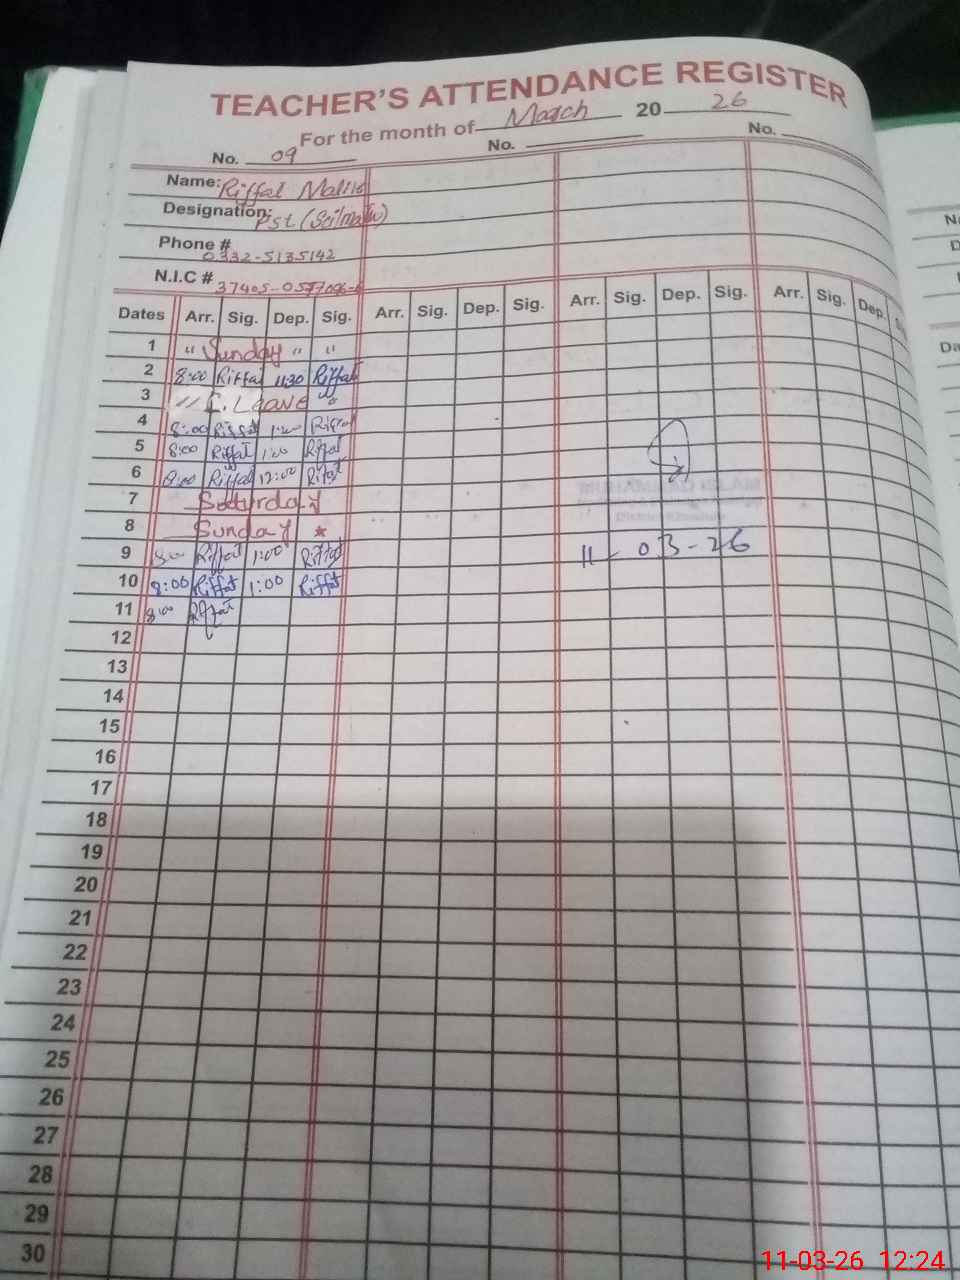 TEACHER'S ATTENDANCE REGISTER
For the month of March 2026
No. 09 No. No.
Name: Riffat Malik
Designation: PST (Sci/math)
Phone # 0332-5135142
N.I.C # 37405-0577096-
Dates Arr. Sig. Dep. Sig. Arr. Sig. Dep. Sig. Arr. Sig. Dep. Sig. Arr. Sig. Dep.
1 " Sunday " "
2 8:00 Riffat 11:30 Riffat
3 " C. Leave "
4 8:00 Riffat 1:00 Riffat
5 8:00 Riffat 1:00 Riffat
6 8:00 Riffat 12:00 Riffat
7 Saturday
8 Sunday *
9 8:00 Riffat 1:00 Riffat 11-03-26
10 8:00 Riffat 1:00 Riffat
11 8:00 Riffat
12
13
14
15
16
17
18
19
20
21
22
23
24
25
26
27
28
29
30
11-03-26 12:24